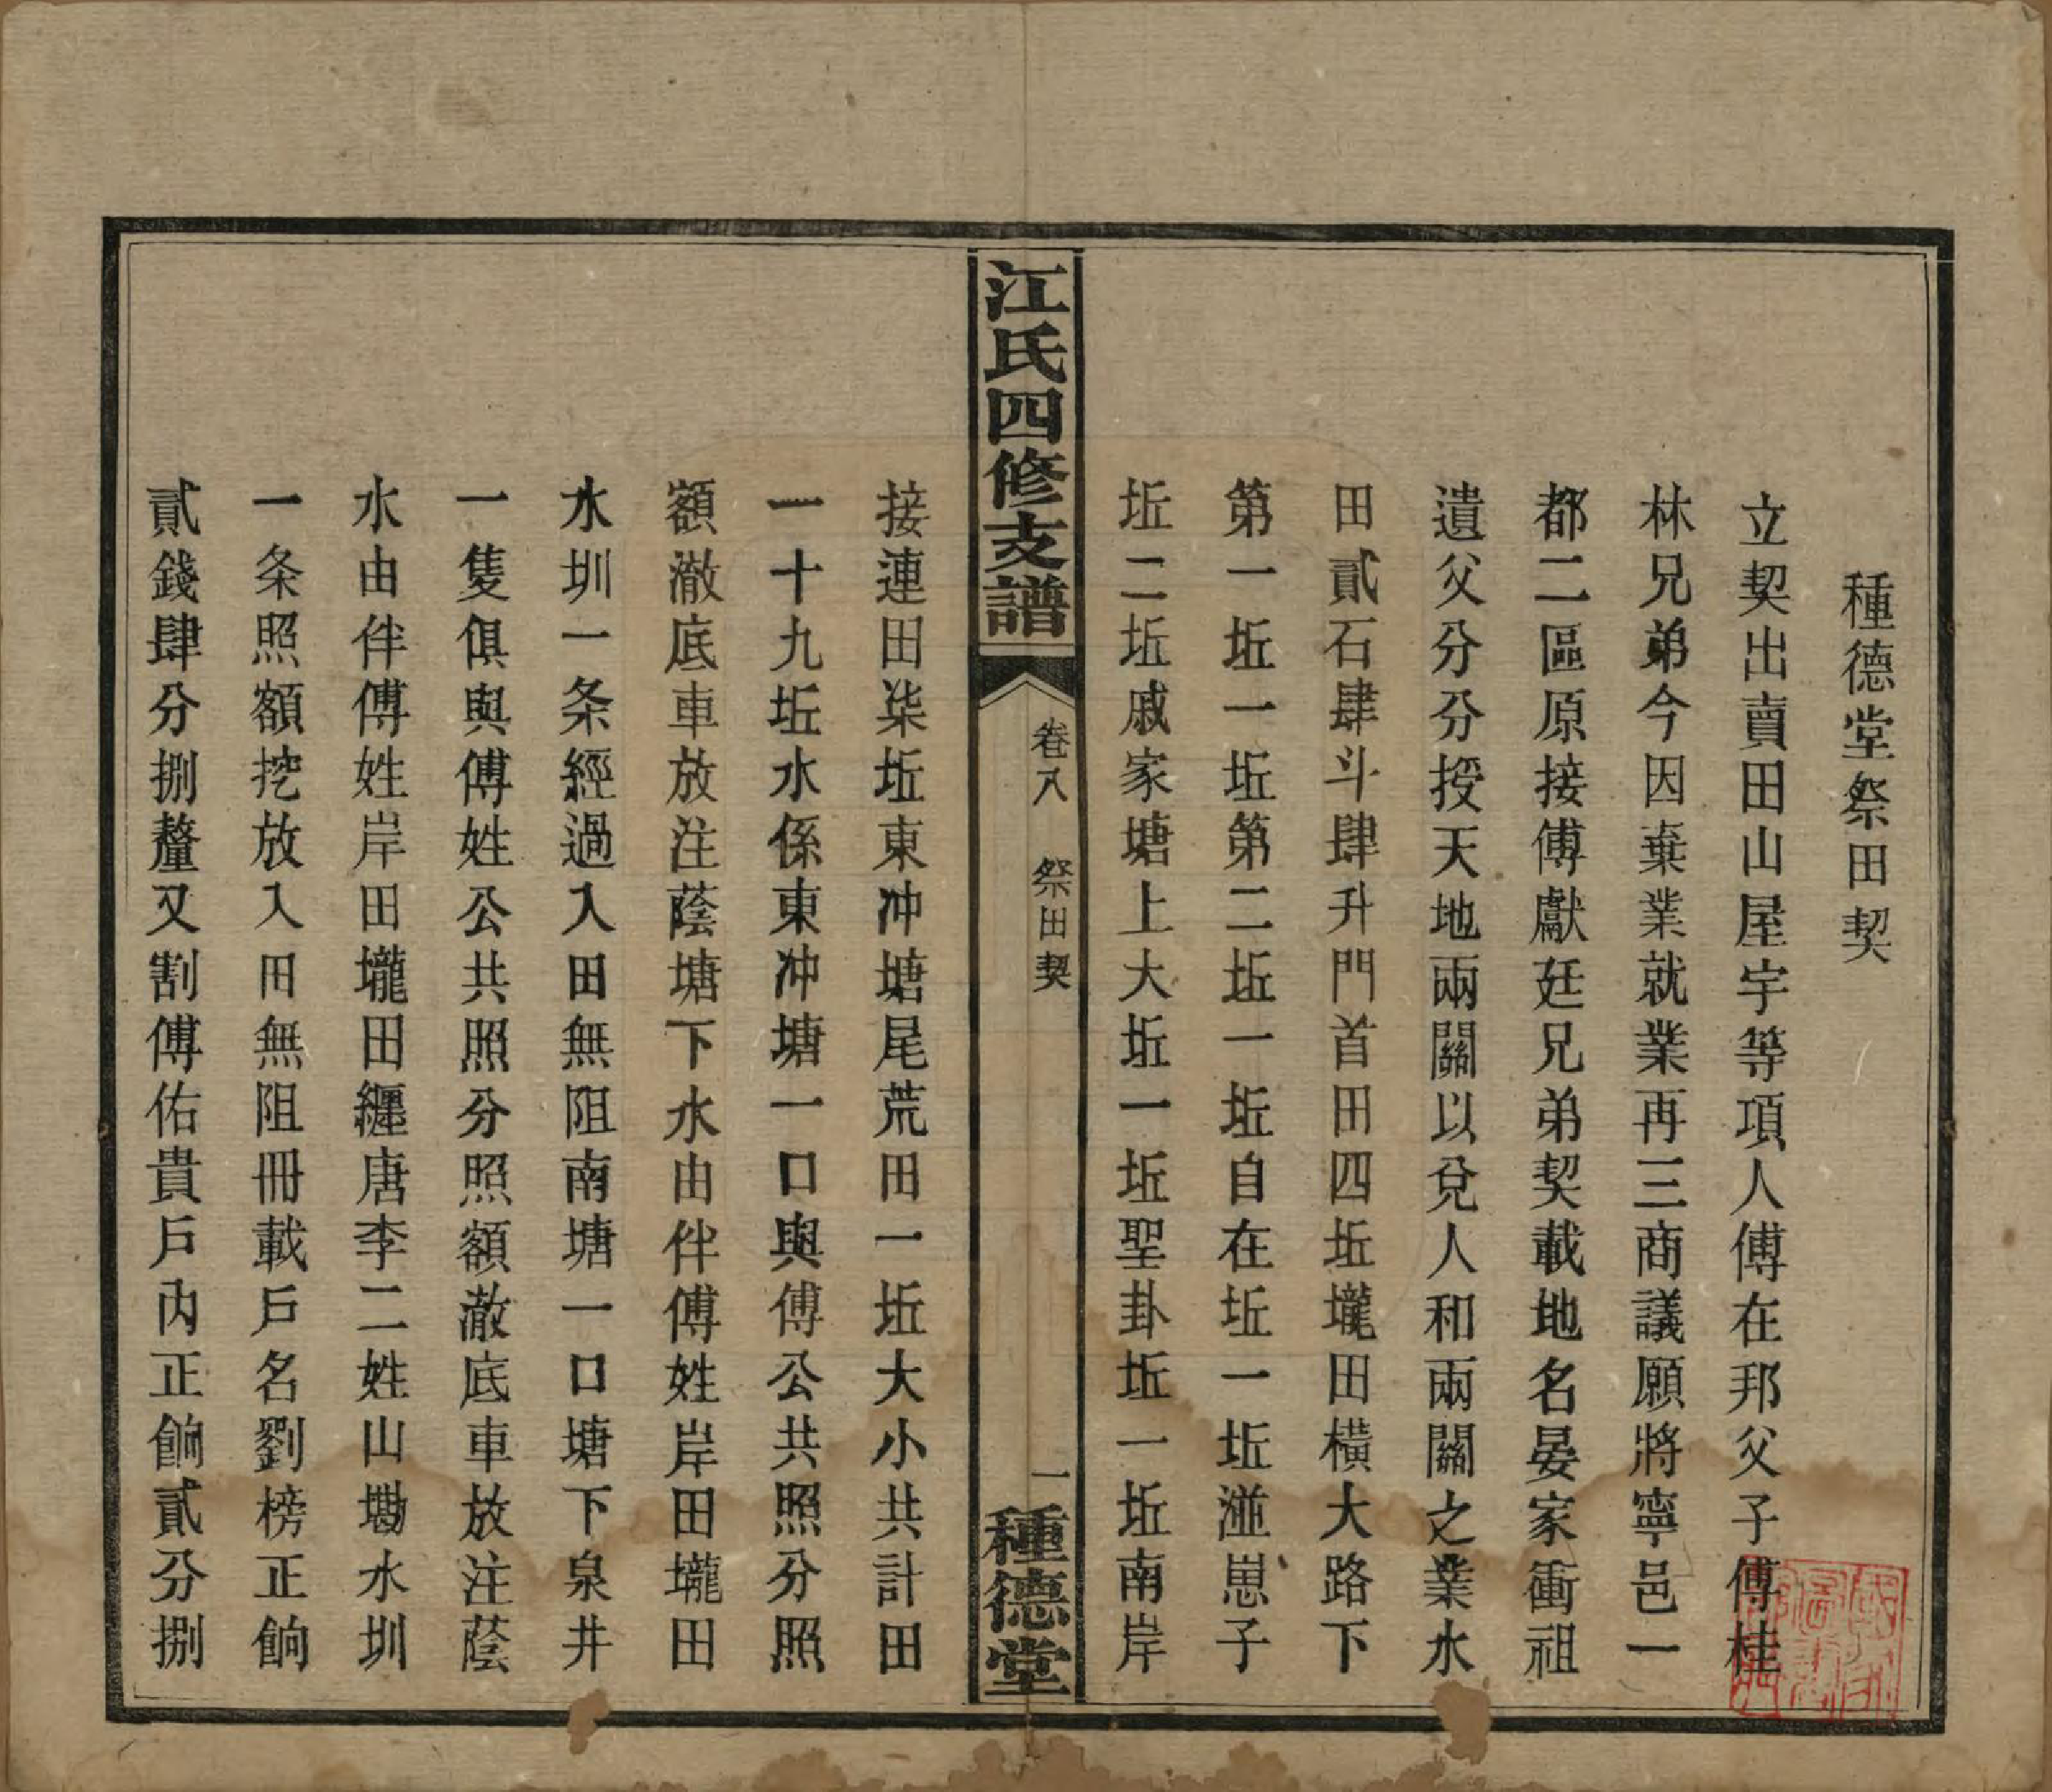 種德堂祭田契
立契出賣田山屋宇等項人傅在邦父子傅桂
林兄弟今因棄業就業再三商議願將寧邑一
都二區原接傅獻廷兄弟契載地名晏家衝祖
遺父分分授天地兩關以兌人和兩關之業水
田貳石肆斗肆升門首田四坵壠田橫大路下
第一坵一坵第二坵一坵自在坵一坵湴崽子
坵二坵戚家塘上大坵一坵聖卦坵一坵南岸
江氏四修支譜
卷八 祭田契
一
種德堂
接連田柒坵東冲塘尾荒田一坵大小共計田
一十九坵水係東冲塘一口與傅公共照分照
額澈底車放注蔭塘下水由伴傅姓岸田壠田
水圳一条經過入田無阻南塘一口塘下泉井
一隻俱與傅姓公共照分照額澈底車放注蔭
水由伴傅姓岸田壠田纒唐李二姓山墈水圳
一条照額挖放入田無阻冊載戶名劉榜正餉
貳錢肆分捌釐又割傅佑貴戶內正餉貳分捌